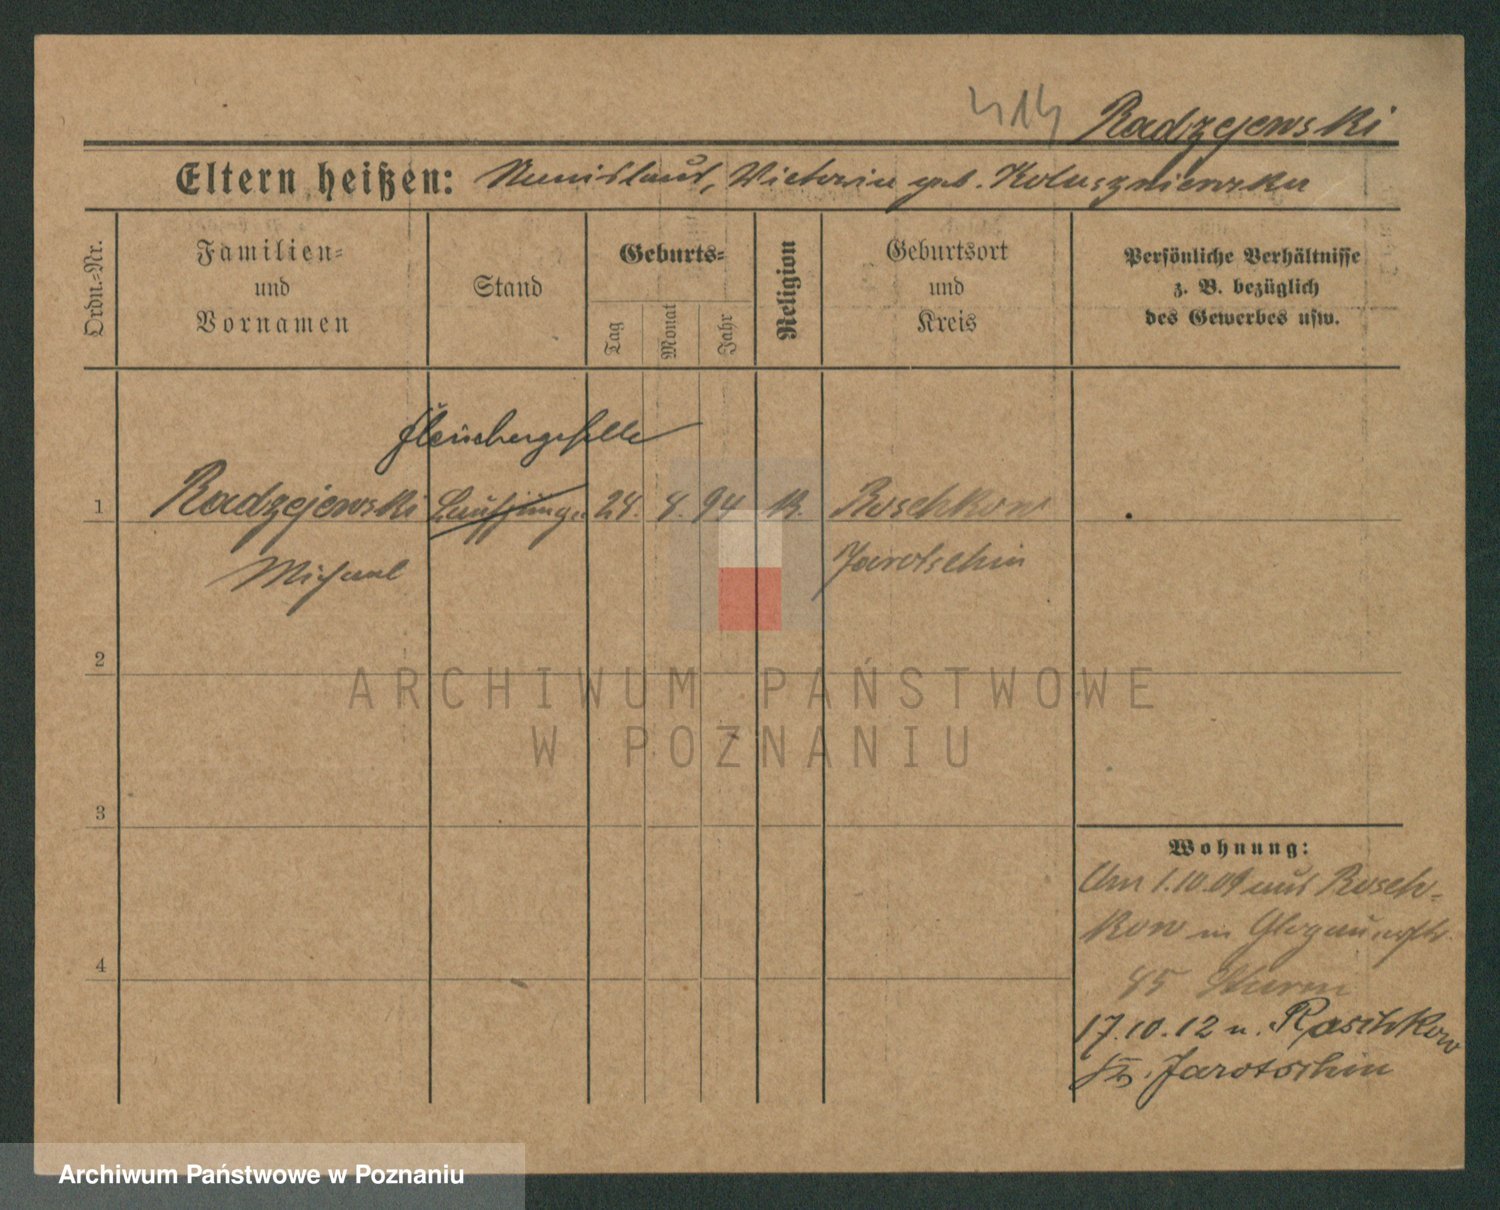 414 Radzejewski
Eltern heißen: Stanislaus, Victoria geb.
Ordn.-Nr.
Familien-
und
Vornamen
Stand
Geburts-
Tag
Monat
Jahr
Religion
Geburtsort
und
Kreis
Persönliche Verhältnisse
z. B. bezüglich
des Gewerbes usw.
Fleischergeselle
1 Radzejewski Laufjunge 24. 8. 94 k. Roschkow
Michael Jarotschin
2
3
4
ARCHIWUM PAŃSTWOWE
W POZNANIU
Wohnung:
Am 1.10.09 aus Rosch-
kow in Glogauerstr.
85
17.10.12 n. Raschkow
Kr. Jarotschin
Archiwum Państwowe w Poznaniu